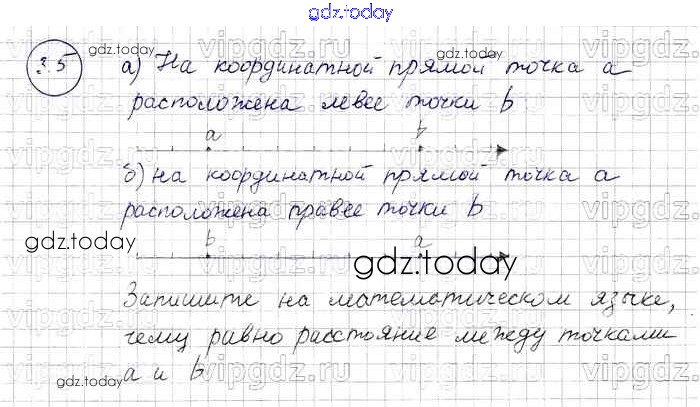 gdz.today
3.5 а) На координатной прямой точка а
gdz.today
расположена левее точки b
a b
б) на координатной прямой точка а
расположена правее точки b
gdz.today
b a
gdz.today
Запишите на математическом языке,
чему равно расстояние между точками
а и b
gdz.today
vipgdz.ru